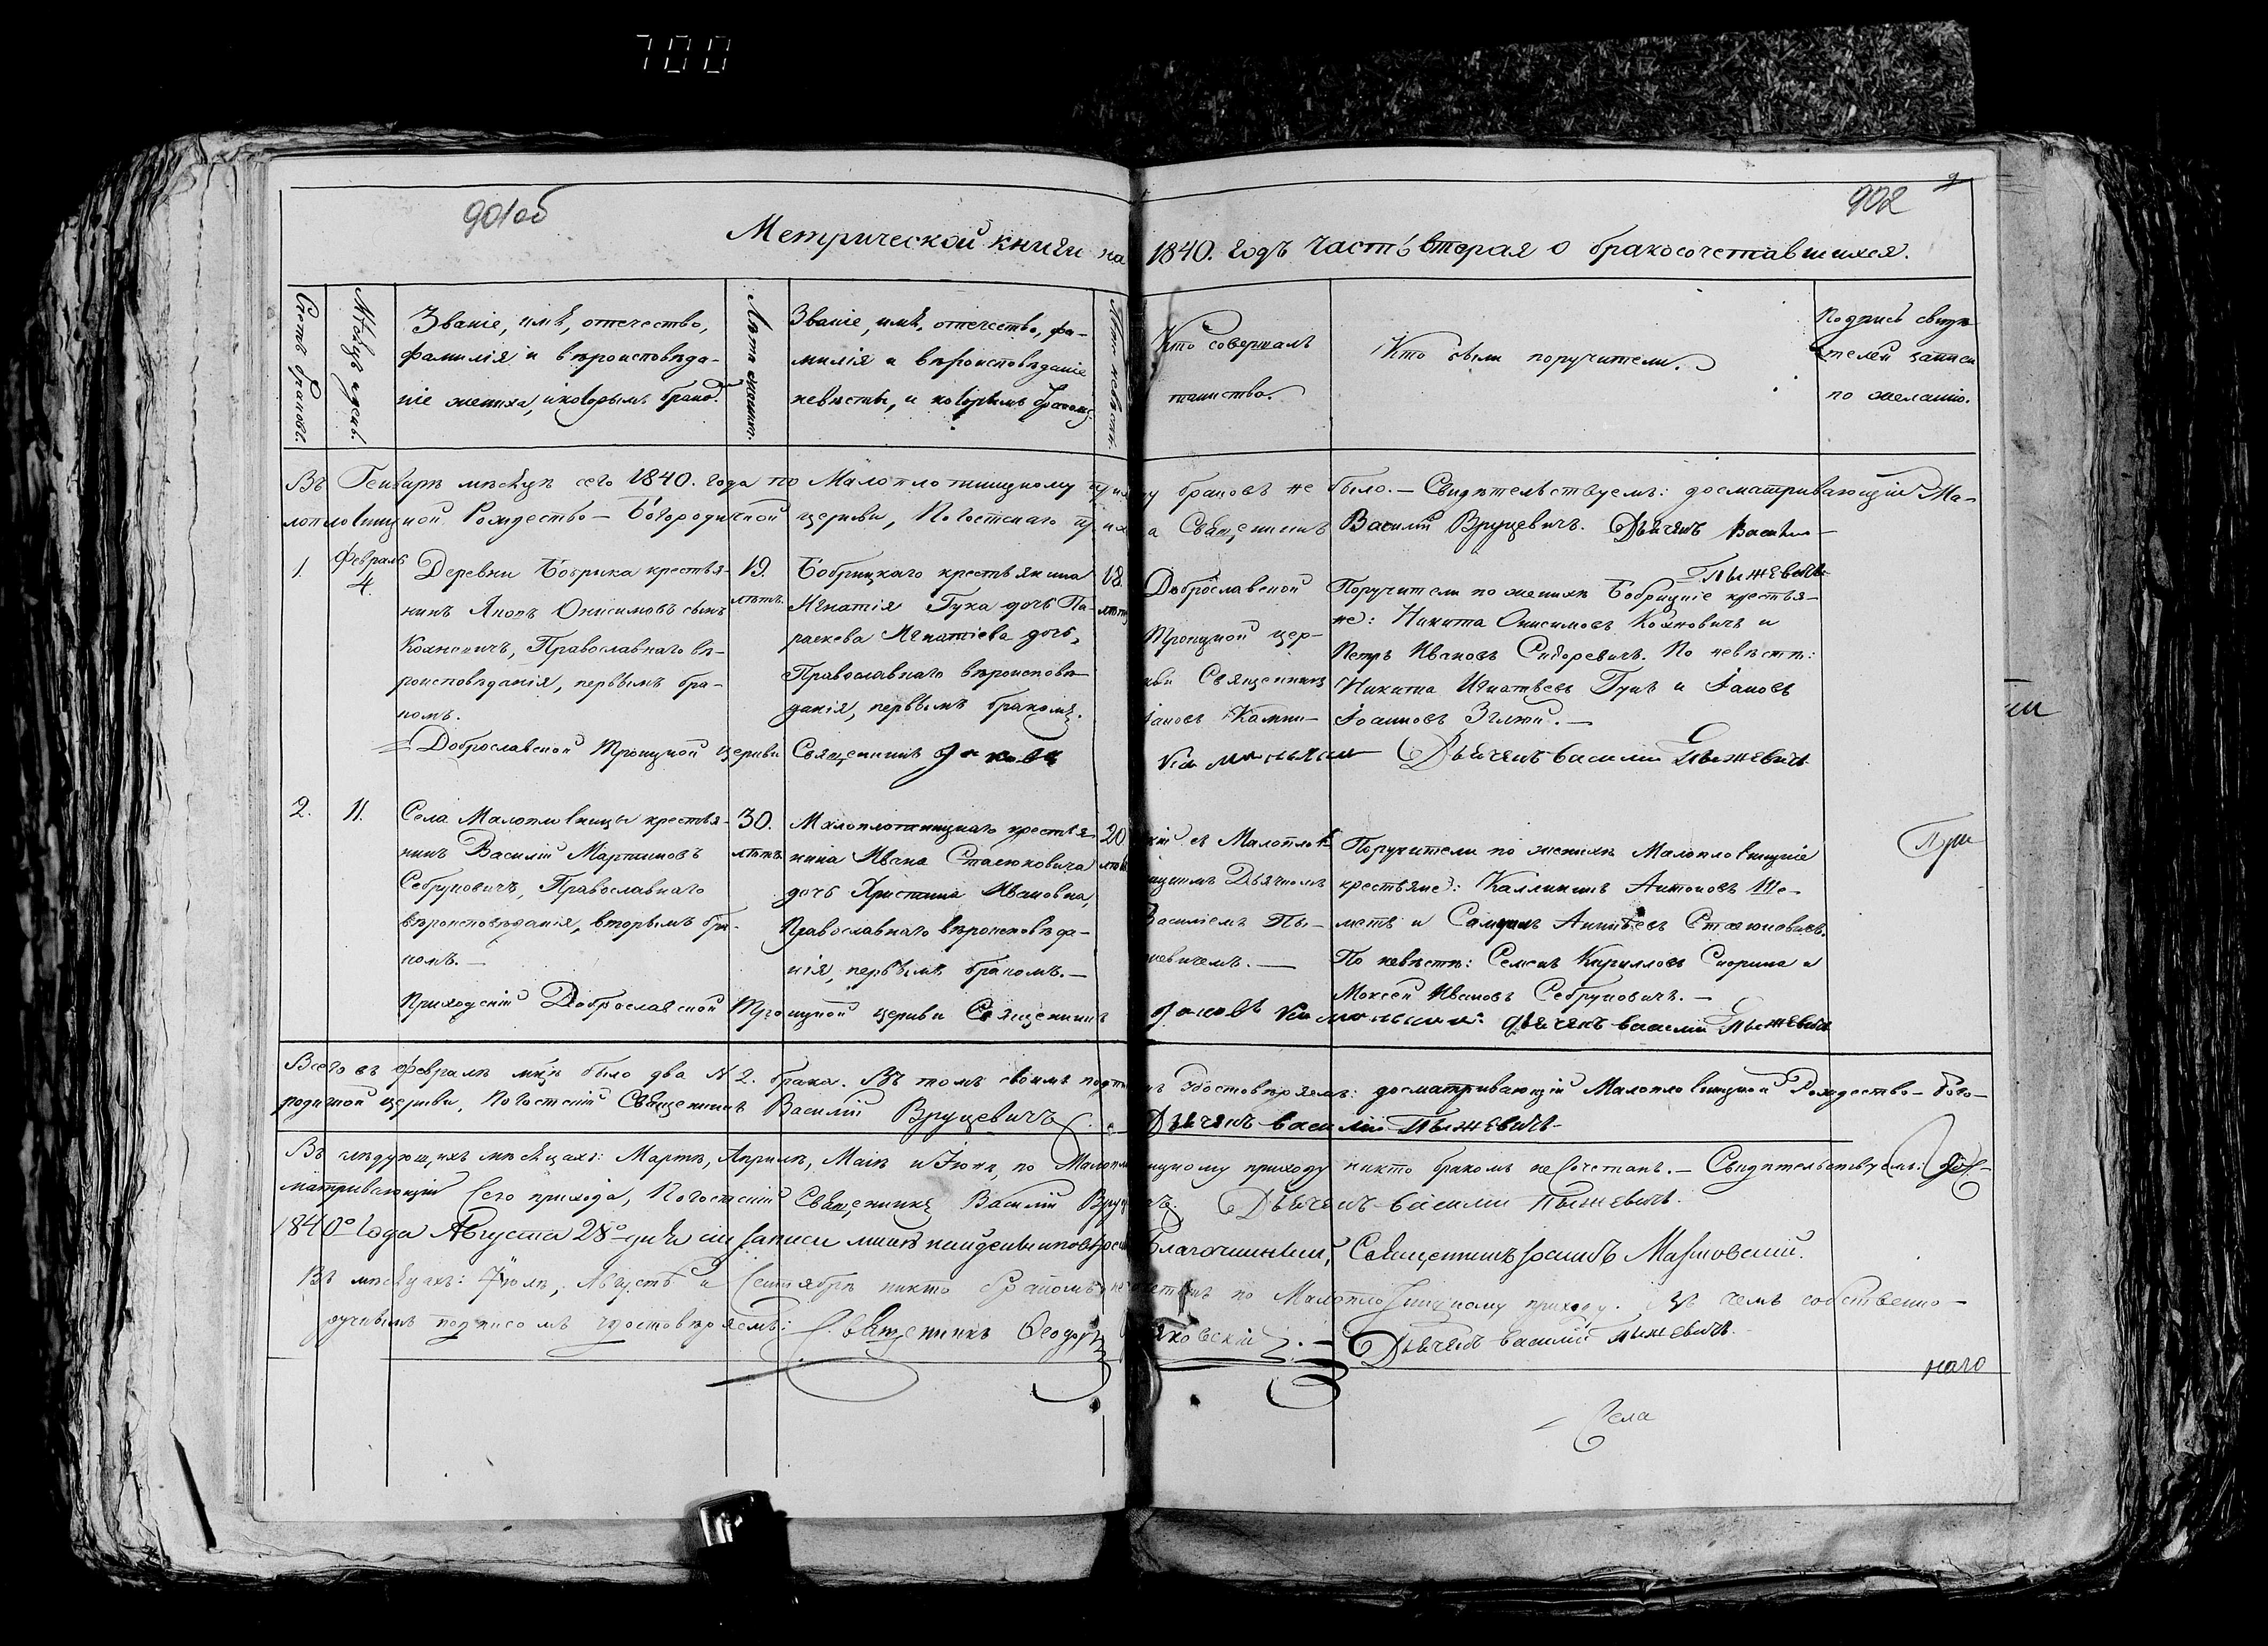 700
901об
902
Метрической книги на 1840. годъ часть вторая о бракосочетавшихся.
Счетъ браковъ.
Мѣсяцъ и день.
Званіе, имѧ, отечество,
фамилія и вѣроисповѣда-
ніе жениха, и которымъ брако.
Лѣта жениха.
Званіе, имѧ, отечество, фа-
милія и вѣроисповѣданіе
невѣсты, и которымъ бракомъ.
Лѣта невѣсты.
Кто совершалъ
таинство.
Кто были поручители.
Подпись свидѣ-
телей записи
по желанію.
Въ Генварѣ мѣсяцѣ сего 1840. года по Малоплотницкому приходу браковъ не было. — Свидѣтельствуемъ: досматривающій Ма-
лоплотницкой Рождество-Богородичной церкви, Погостскаго прихода Священникъ Василій Вруцевичъ. Дьячекъ Василій
Пыжевичъ
1.
Февраль
4.
Деревни Бобрика крестья-
нинъ Яковъ Онисимовъ сынъ
Кохновичъ, Православнаго вѣ-
роисповѣданія, первымъ бра-
комъ.
19.
лѣтъ.
Бобрицкаго крестьянина
Игнатія Гука дочь Па-
раскева Игнатіева дочь,
Православнаго вѣроисповѣ-
данія, первымъ бракомъ.
18.
лѣтъ
Доброславской
Троицкой цер-
кви Священникъ
Поручители по женихѣ Бобрицкіе крестья-
не: Никита Онисимовъ Кохновичъ и
Петръ Ивановъ Сидоревичъ. По невѣстѣ:
Никита Игнатьевъ Гукъ и
Доброславской Троицкой церкви Священникъ
Дьячекъ Василій Пыжевичъ
2.
11.
Села Малоплотницы крестья-
нинъ Василій Мартиновъ
Себруковичъ, Православнаго
вѣроисповѣданія, вторымъ бра-
комъ. —
30.
лѣтъ
Малоплотницкаго крестья-
нина Ивана Стасюковича
дочь Христина Ивановна,
Православнаго вѣроисповѣда-
нія, первымъ бракомъ. —
20
лѣтъ
съ Малоплот
Дьячкомъ
Василіемъ Пы-
жевичемъ. —
Поручители по женихѣ Малоплотницкіе
крестьяне: Каллиникъ Антоновъ Ше-
метъ и
По невѣстѣ: Семенъ Кирилловъ Скорина и
Моксей Ивановъ Себруковичъ. —
Приходскій Доброславской Троицкой церкви Священникъ
Дьячекъ Василій Пыжевичъ
При
Всего въ Февралѣ мцѣ было два № 2. брака. Въ томъ своимъ удостовѣряемъ: досматривающій Малоплотницкой Рождество-Бого-
родичной церкви, Погостскій Священникъ Василій Вруцевичъ. Дьячекъ Василій Пыжевичъ
Въ слѣдующихъ мѣсяцахъ: Мартѣ, Апрѣлѣ, Маіѣ и Іюнѣ, по Малоплотницкому приходу никто бракомъ не сочетанъ. — Свидѣтельствуемъ: дос-
матривающій сего прихода, Погостскій Священникъ Василій Вруцевичъ. Дьячекъ Василій Пыжевичъ.
1840го года Августа 28го дня сіи записи мною найдены Благочинный, Священникъ
Въ мѣсяцахъ: Іюлѣ, Августѣ и Сентябрѣ никто бракомъ не сочетанъ по Малоплотницкому приходу. Въ чемъ собственно-
ручнымъ подписомъ удостовѣряемъ: Священникъ Ѳеодоръ Дьячекъ Василій Пыжевичъ.
наго
Села